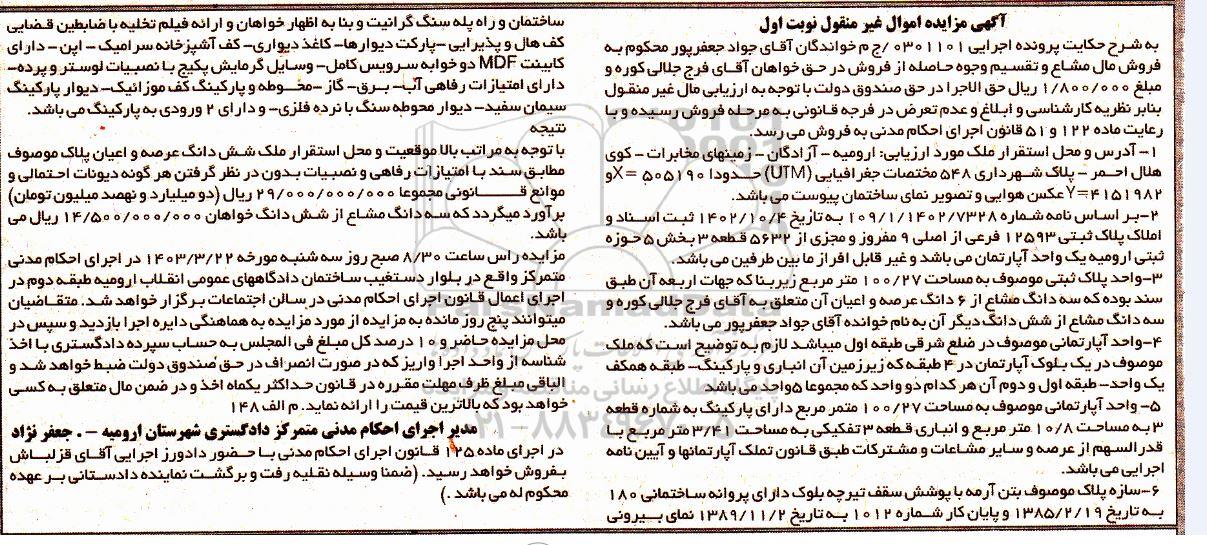 آگهی مزایده اموال غیر منقول نوبت اول
به شرح حکایت پرونده اجرایی ۰۳۰۱۱۰۱ /ج م خواندگان آقای جواد جعفرپور محکوم به
فروش مال مشاع و تقسیم وجوه حاصله از فروش در حق خواهان آقای فرج جلالی کوره و
مبلغ ۱/۸۰۰/۰۰۰ ریال حق الاجرا در حق صندوق دولت با توجه به ارزیابی مال غیر منقول
بنابر نظریه کارشناسی و ابلاغ و عدم تعرض در فرجه قانونی به مرحله فروش رسیده و با
رعایت ماده ۱۲۲ و ۵۱ قانون اجرای احکام مدنی به فروش می رسد.
۱- آدرس و محل استقرار ملک مورد ارزیابی: ارومیه - آزادگان - زمینهای مخابرات - کوی
هلال احمر - پلاک شهرداری ۵۴۸ مختصات جغرافیایی (UTM) حدودا ۵۰۵۱۹۰ =X و
Y=۴۱۵۱۹۸۲ عکس هوایی و تصویر نمای ساختمان پیوست می باشد.
۲-بر اساس نامه شماره ۱۰۹/۱/۱۴۰۲/۷۳۲۸ به تاریخ ۱۴۰۲/۱۰/۴ ثبت اسناد و
املاک پلاک ثبتی ۱۲۵۹۳ فرعی از اصلی ۹ مفروز و مجزی از ۵۶۳۲ قطعه ۳ بخش ۵ حوزه
ثبتی ارومیه یک واحد آپارتمان می باشد و غیر قابل افراز ما بین طرفین می باشد.
۳-واحد پلاک ثبتی موصوف به مساحت ۱۰۰/۲۷ متر مربع زیربنا که جهات اربعه آن طبق
سند بوده که سه دانگ مشاع از ۶ دانگ عرصه و اعیان آن متعلق به آقای فرج جلالی کوره و
سه دانگ مشاع از شش دانگ دیگر آن به نام خوانده آقای جواد جعفرپور می باشد.
۴-واحد آپارتمانی موصوف در ضلع شرقی طبقه اول میباشد لازم به توضیح است که ملک
موصوف در یک بلوک آپارتمان در ۴ طبقه که زیرزمین آن انباری و پارکینگ- طبقه همکف
یک واحد- طبقه اول و دوم آن هر کدام دو واحد که مجموعا ۵واحد می باشد
۵- واحد آپارتمانی موصوف به مساحت ۱۰۰/۲۷ متر مربع دارای پارکینگ به شماره قطعه
۳ به مساحت ۱۰/۸ متر مربع و انباری قطعه ۳ تفکیکی به مساحت ۳/۴۱ متر مربع با
قدر السهم از عرصه و سایر مشاعات و مشترکات طبق قانون تملک آپارتمانها و آیین نامه
اجرایی می باشد.
۶-سازه پلاک موصوف بتن آرمه با پوشش سقف تیرچه بلوک دارای پروانه ساختمانی ۱۸۰
به تاریخ ۱۳۸۵/۲/۱۹ و پایان کار شماره ۱۰۱۲ به تاریخ ۱۳۸۹/۱۱/۲ نمای بیرونی
ساختمان و راه پله سنگ گرانیت و بنا به اظهار خواهان و ارائه فیلم تخلیه با ضابطین قضایی
کف هال و پذیرایی -پارکت دیوارها- کاغذ دیواری- کف آشپزخانه سرامیک - اپن - دارای
کابینت MDF دو خوابه سرویس کامل- وسایل گرمایش پکیج با نصبیات لوستر و پرده-
دارای امتیازات رفاهی آب- برق- گاز -محوطه و پارکینگ کف موزائیک- دیوار پارکینگ
سیمان سفید- دیوار محوطه سنگ با نرده فلزی- و دارای ۲ ورودی به پارکینگ می باشد.
نتیجه
با توجه به مراتب بالا موقعیت و محل استقرار ملک شش دانگ عرصه و اعیان پلاک موصوف
مطابق سند با امتیازات رفاهی و نصبیات بدون در نظر گرفتن هر گونه دیونات احتمالی و
موانع قانونی مجموعا ۲۹/۰۰۰/۰۰۰/۰۰۰ ریال (دو میلیارد و نهصد میلیون تومان)
برآورد میگردد که سه دانگ مشاع از شش دانگ خواهان ۱۴/۵۰۰/۰۰۰/۰۰۰ ریال می
باشد.
مزایده راس ساعت ۸/۳۰ صبح روز سه شنبه مورخه ۱۴۰۳/۳/۲۲ در اجرای احکام مدنی
متمرکز واقع در بلوار دستغیب ساختمان دادگاههای عمومی انقلاب ارومیه طبقه دوم در
اجرای اعمال قانون اجرای احکام مدنی در سالن اجتماعات برگزار خواهد شد. متقاضیان
میتوانند پنج روز مانده به مزایده از مورد مزایده به هماهنگی دایره اجرا بازدید و سپس در
محل مزایده حاضر و ۱۰ درصد کل مبلغ فی المجلس به حساب سپرده دادگستری با اخذ
شناسه از واحد اجرا واریز که در صورت انصراف در حق صندوق دولت ضبط خواهد شد و
الباقی مبلغ ظرف مهلت مقرره در قانون حداکثر یکماه اخذ و در ضمن مال متعلق به کسی
خواهد بود که بالاترین قیمت را ارائه نماید. م الف ۱۴۸
مدیر اجرای احکام مدنی متمرکز دادگستری شهرستان ارومیه - . جعفر نژاد
در اجرای ماده ۱۲۵ قانون اجرای احکام مدنی با حضور دادورز اجرایی آقای قزلباش
بفروش خواهد رسید. (ضمنا وسیله نقلیه رفت و برگشت نماینده دادستانی بر عهده
محکوم له می باشد .)